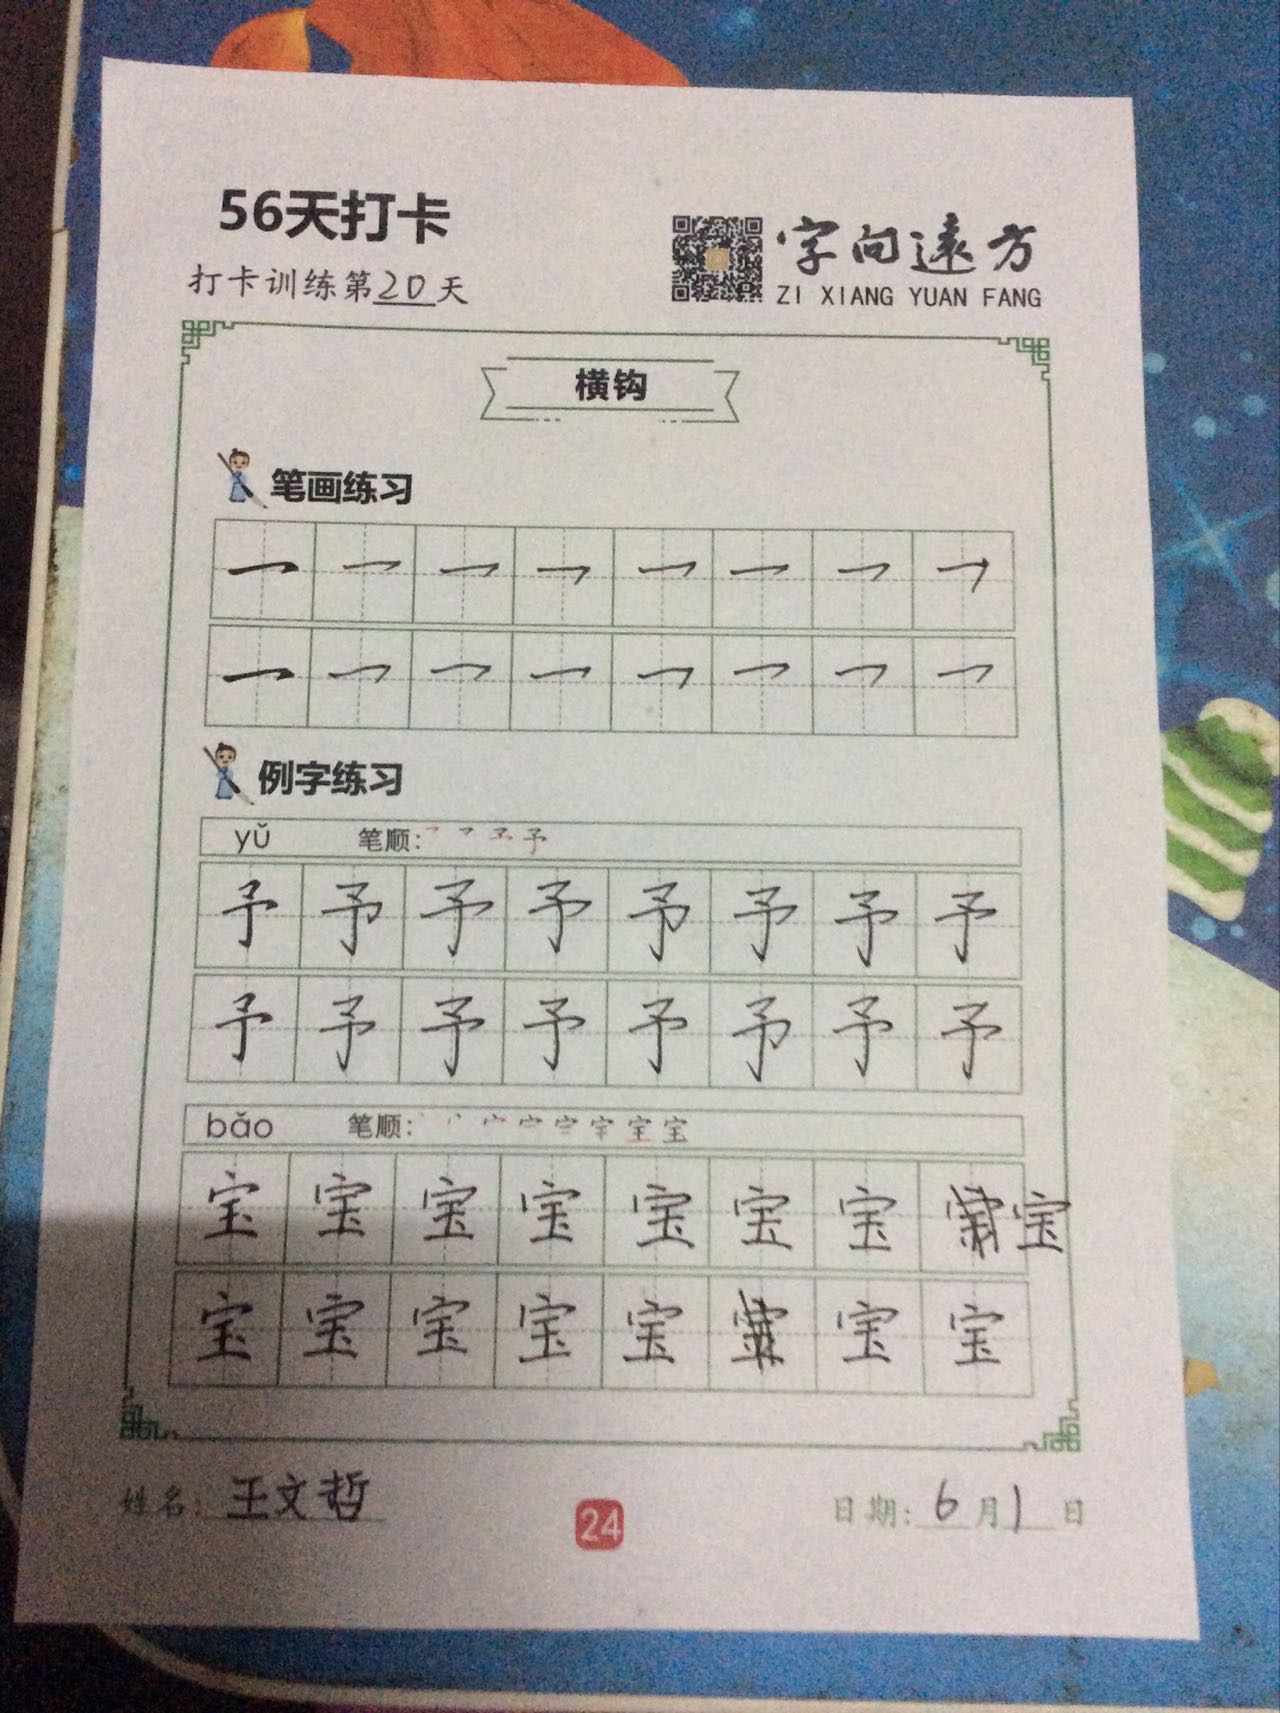 56天打卡
打卡训练第20天
字向远方
ZI XIANG YUAN FANG
横钩
笔画练习
例字练习
yǔ 笔顺: 予
予 予 予 予 予 予 予 予
予 予 予 予 予 予 予 予
bǎo 笔顺: 宝
宝 宝 宝 宝 宝 宝 宝 宝
宝 宝 宝 宝 宝 宝 宝
姓名: 王文哲
24
日期: 6月1日